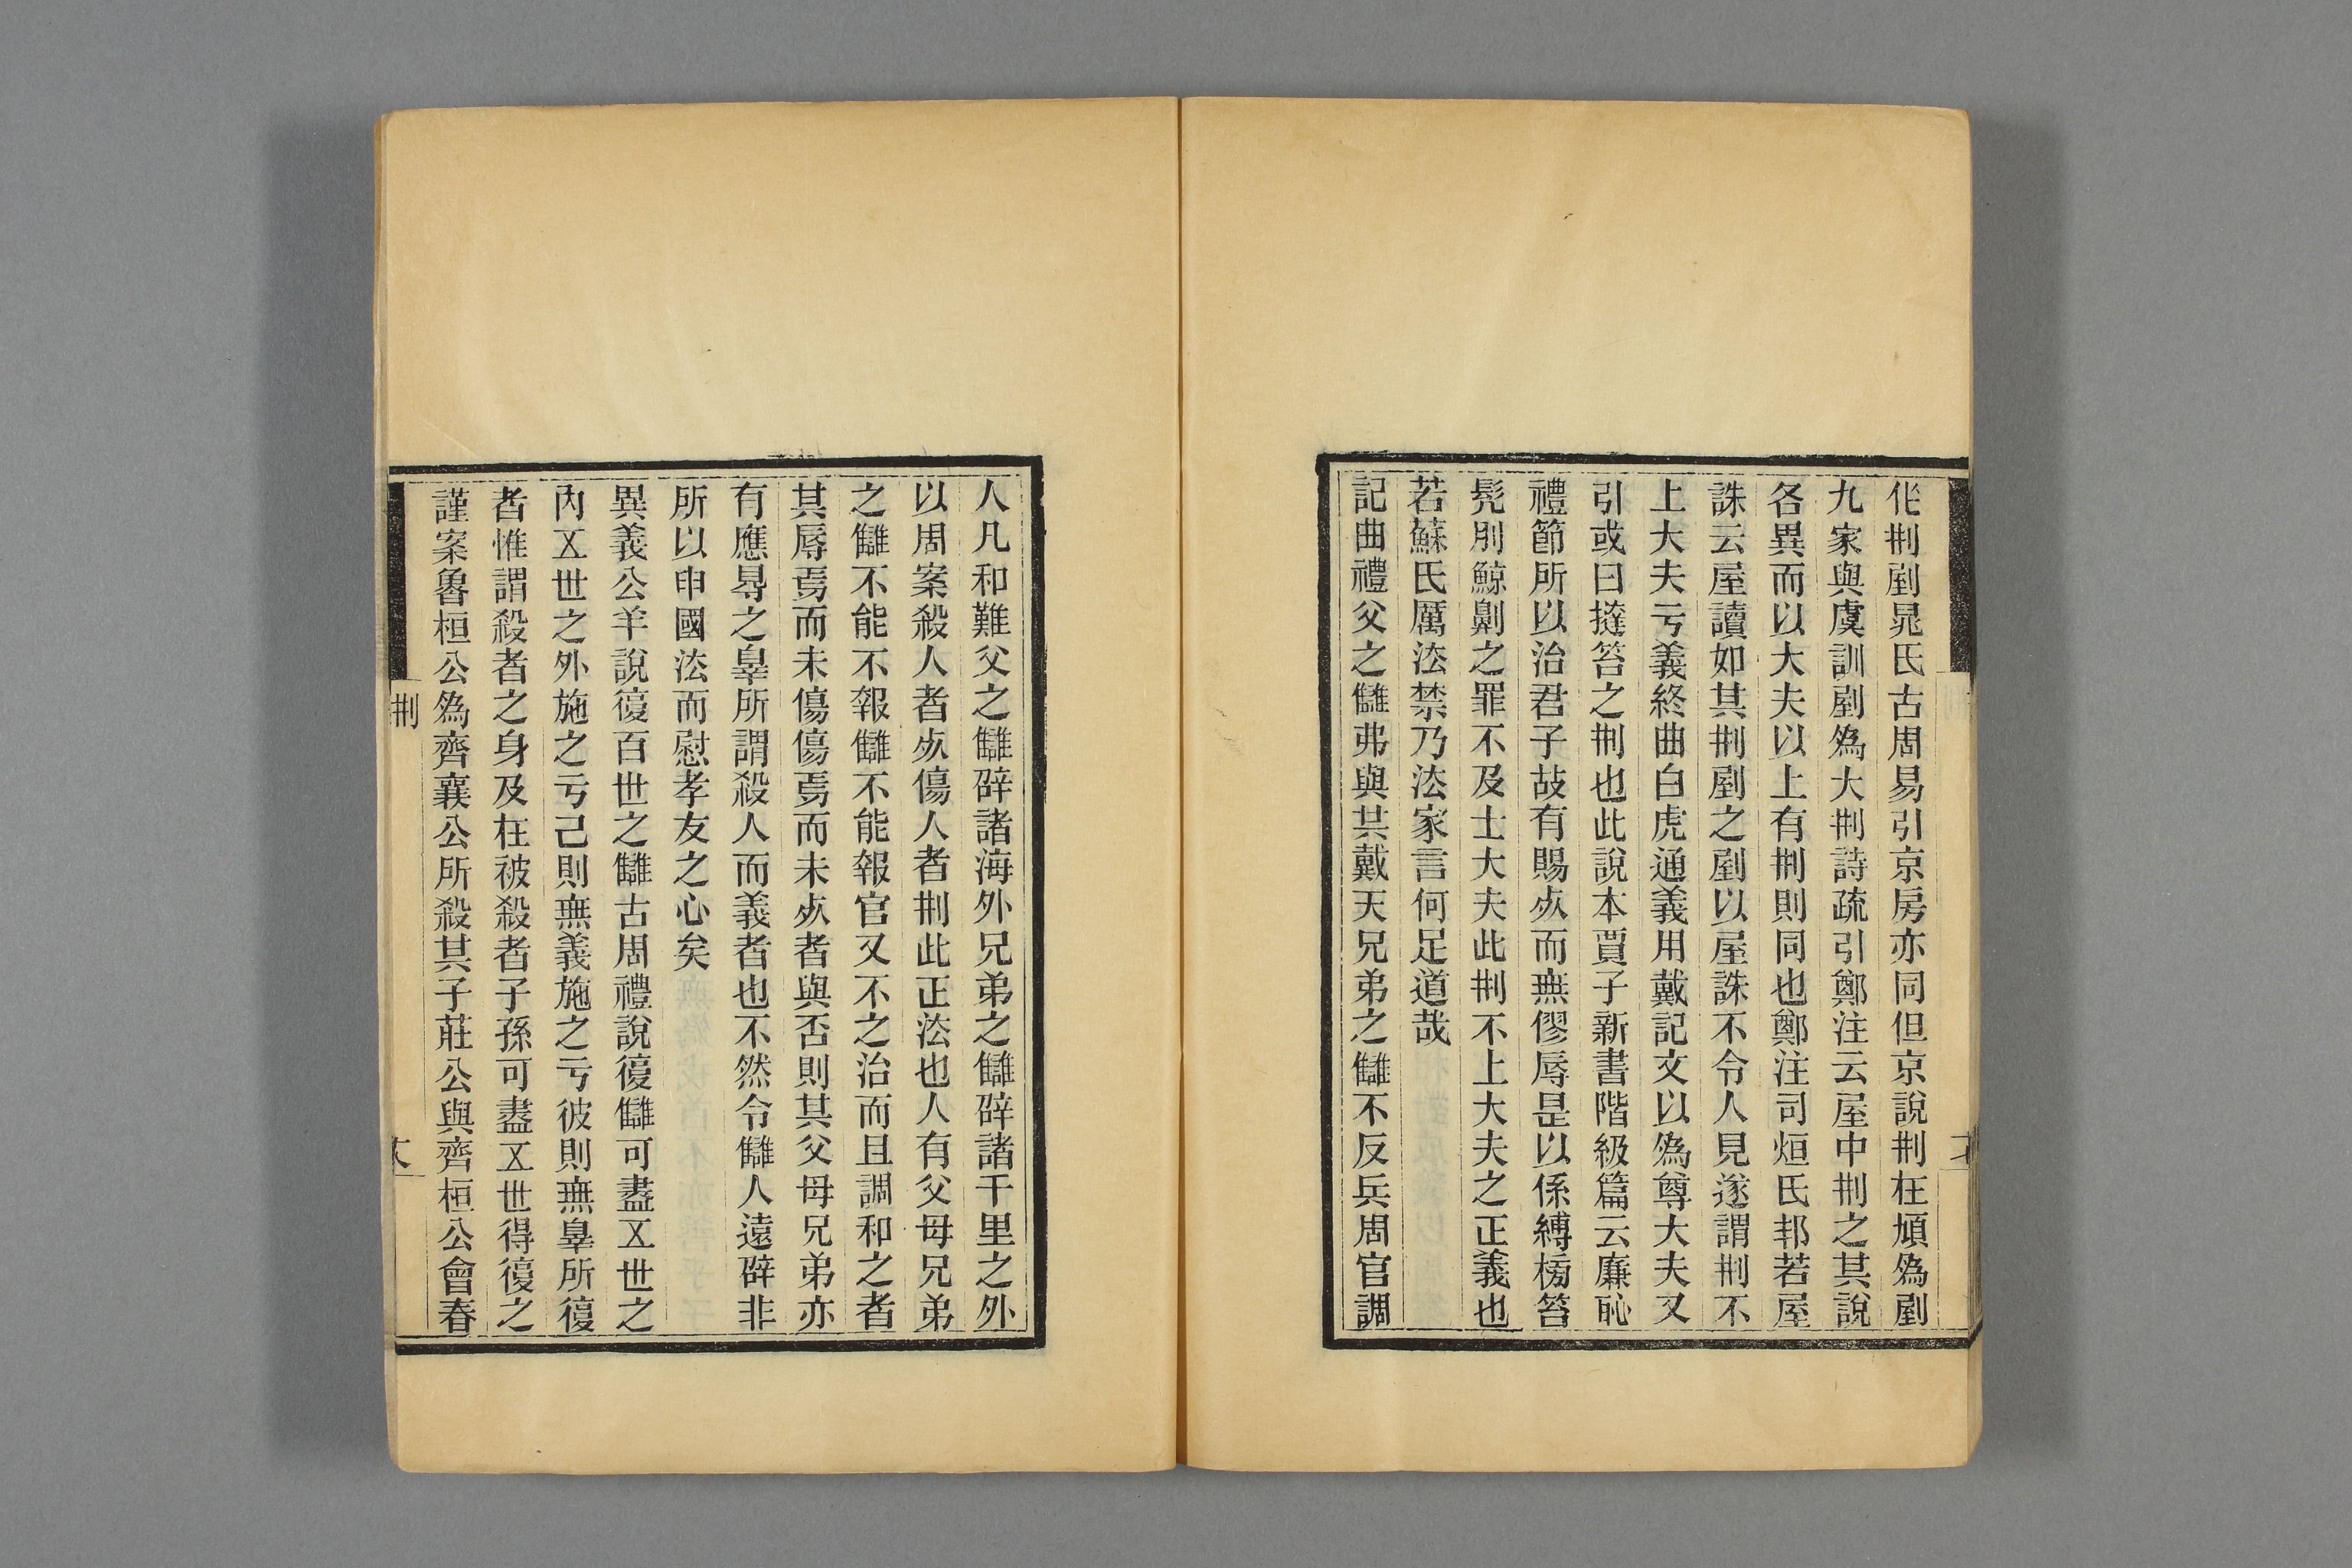 作㓝剭晁氏古周易引京房亦同但京說㓝在頄爲剭
九家與虞訓剭爲大㓝詩疏引鄭注云屋中㓝之其說
各異而以大夫以上有㓝則同也鄭注司烜氏邦若屋
誅云屋讀如其㓝剭之剭以屋誅不令人見遂謂㓝不
上大夫亏義終曲白虎通義用戴記文以爲尊大夫又
引或曰撻笞之㓝也此說本賈子新書階級篇云廉恥
禮節所以治君子故有賜㱙而無僇辱是以係縛榜笞
髡刖黥劓之罪不及士大夫此㓝不上大夫之正義也
若蘇氏厲法禁乃法家言何足道哉
記曲禮父之讎弗與共戴天兄弟之讎不反兵周官調
人凡和難父之讎辟諸海外兄弟之讎辟諸千里之外
以周案殺人者㱙傷人者㓝此正法也人有父母兄弟
之讎不能不報讎不能報官又不之治而且調和之者
其辱焉而未傷傷焉而未㱙者與否則其父母兄弟亦
有應㝵之辠所謂殺人而義者也不然令讎人遠辟非
所以申國法而慰孝友之心矣
異義公羊說復百世之讎古周禮說復讎可盡五世之
內五世之外施之亏己則無義施之亏彼則無辠所復
者惟謂殺者之身及在被殺者子孫可盡五世得復之
謹案魯桓公爲齊襄公所殺其子莊公與齊桓公會春
㓝